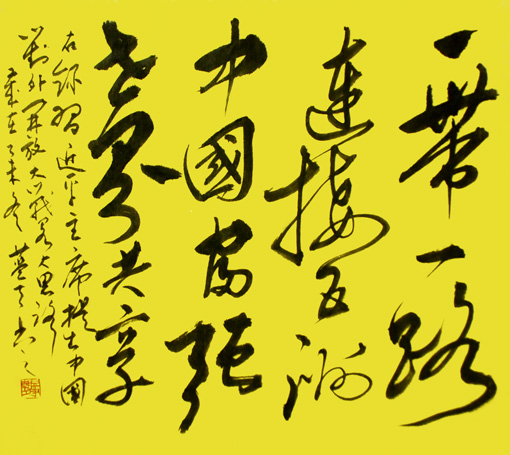 一帶一路
連接五洲
中國富强
世界共享
右録習近平主席提出中國
對外開放大戰略大思路
歲在乙未冬